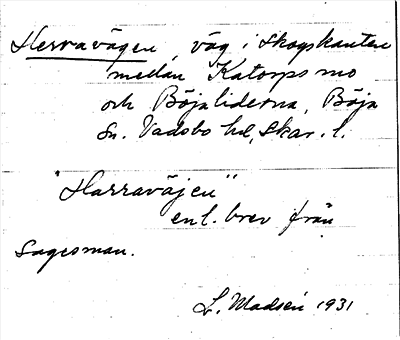 Herravägen, väg i skogskanten
mellan Katorps mo
och Böjaliderna, Böja
sn. Vadsbo hd, Skar. l.
"Harraväjen"
enl. brev från
sagesman.
L. Madsén 1931